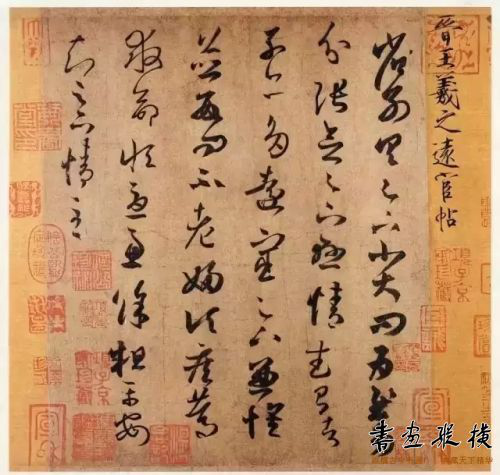 晉王羲之遠宦帖
省別具足下小大問為慰多
分張念足下懸情武昌諸
子亦多遠宦足下兼懷
並數問不老婦頃疾篤
救命恒憂慮餘粗平安
知足下情至
書畫縱橫